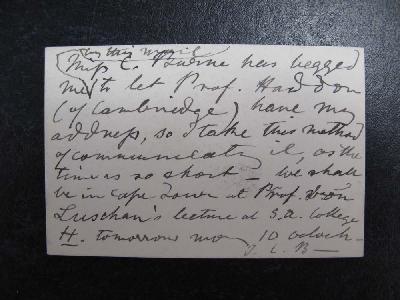 by this mail
(Miss C. Burne has begged
me) to let Prof. Haddon
(of Cambridge) have my
address, so I take this method
of communicating it, as the
time is so short – we shall
be in Cape Town at Prof. von
Luschan's lecture at S.A. College
H. tomorrow mor 10 oclock –
L. B –